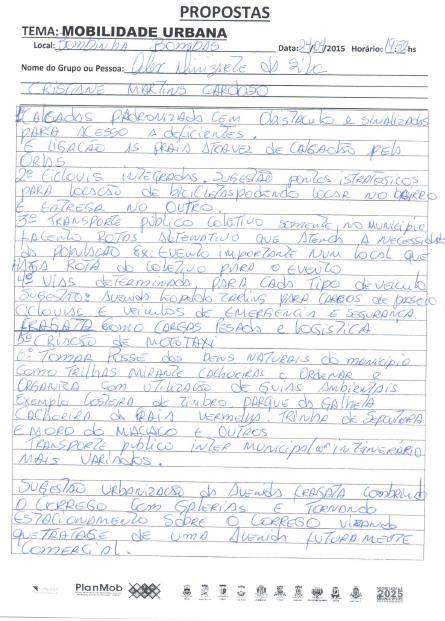 PROPOSTAS
TEMA: MOBILIDADE URBANA
Local: Bombinha Bombas Data: 24/04/2015 Horário: 19:50 hs
Nome do Grupo ou Pessoa: da Silva
CRISTIANE MARTINS CARDOSO
1º CALÇADAS PADRONIZADAS SEM OBSTACULO E SINALIZADAS
PARA ACESSO A DEFICIENTES.
E LIGAÇÃO AS PRAIS ATRAVEL DE CALÇADÃO PELA
ORLA
2º CICLOVIS INTEGRADAS. SUGESTÃO PONTOS ISTRATÉGICOS
PARA LOCAÇÃO DE BICICLETAS PODENDO LOCAR NO BAIRRO
E ENTREGA NO OUTRO.
3º TRANSPORTE PÚBLICO COLETIVO SOMENTE NO MUNICIPIO
FACENTO ROTAS ALTERNATIVO QUE ATENDA A NECESSIDADE
DA POPULAÇÃO EX: EVENTO IMPORTANTE NUM LOCAL QUE
HAJA ROTA DO COLETIVO PARA O EVENTO
4º VIAS DETERMINADAS PARA CADA TIPO DE VEICULO
SUGESTÃO: AVENIDA LEOPOLDO ZARLING PARA CARROS DE PASSEIO
CICLOVIAS E VEICULOS DE EMERGENCIA E SEGURANÇA.
FRAGATA COMO CARGAS PESADA E LOGISTICA
5º CRIAÇÃO DE MOTOTAXI
6º TOMAR POSSE DOS BENS NATURAIS DO MUNICIPIO
COMO TRILHAS MIRANTE CACHOEIRAS E ORDENAR E
ORGANIZA COM UTILIZAÇÃO DE GUIAS AMBIENTAIS
EXEMPLO COSTEIRA DE ZIMBRO, PARQUE DA GALHETA
CACHOEIRA DA PRAIA VERMELHA. TRINHA DE SEPULTURA
E MORO DO MACACO E OUTROS
TRANSPORTE PÚBLICO INTER MUNICIPAL COM INTINERÁRIO
MAIS VARIADOS.
SUGESTÃO URBANIZAÇÃO DA AVENIDA FRAGATA COMBRINDO
O CORREGO COM GALERIAS E TORNANDO
ESTACIONAMENTO SOBRE O CORREGO VIZANDO
QUE TRATASE DE UMA AVENIDA FUTURAMENTE
COMERCIAL.
PlanMob
2025